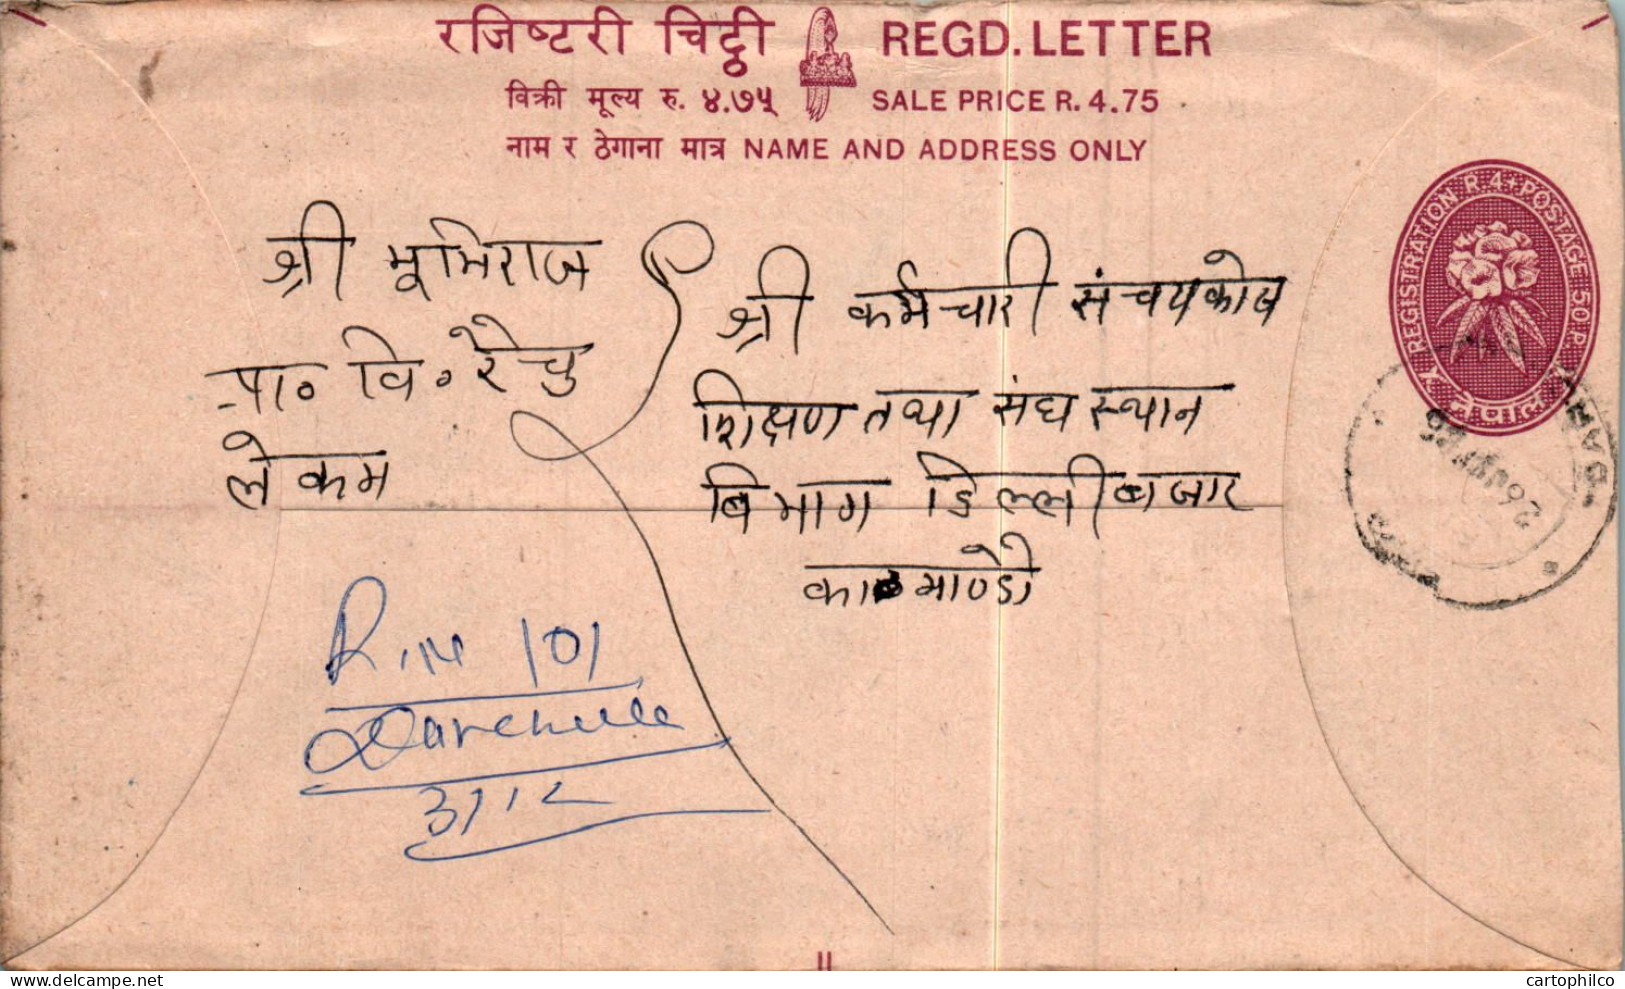 रजिष्टरी चिट्ठी REGD. LETTER
विक्री मूल्य रु. ४.७५ SALE PRICE R. 4.75
नाम र ठेगाना मात्र NAME AND ADDRESS ONLY
REGISTRATION R. 4 + POSTAGE 50 P.
नेपाल
श्री भूमिराज
प्रा॰ वि॰ रैचु
लेकम
श्री कर्मचारी संचयकोष
शिक्षण तथा संघ स्थान
बिभाग डिल्लीबजार
काठमाण्डौ
101
Darchula
cartophilco